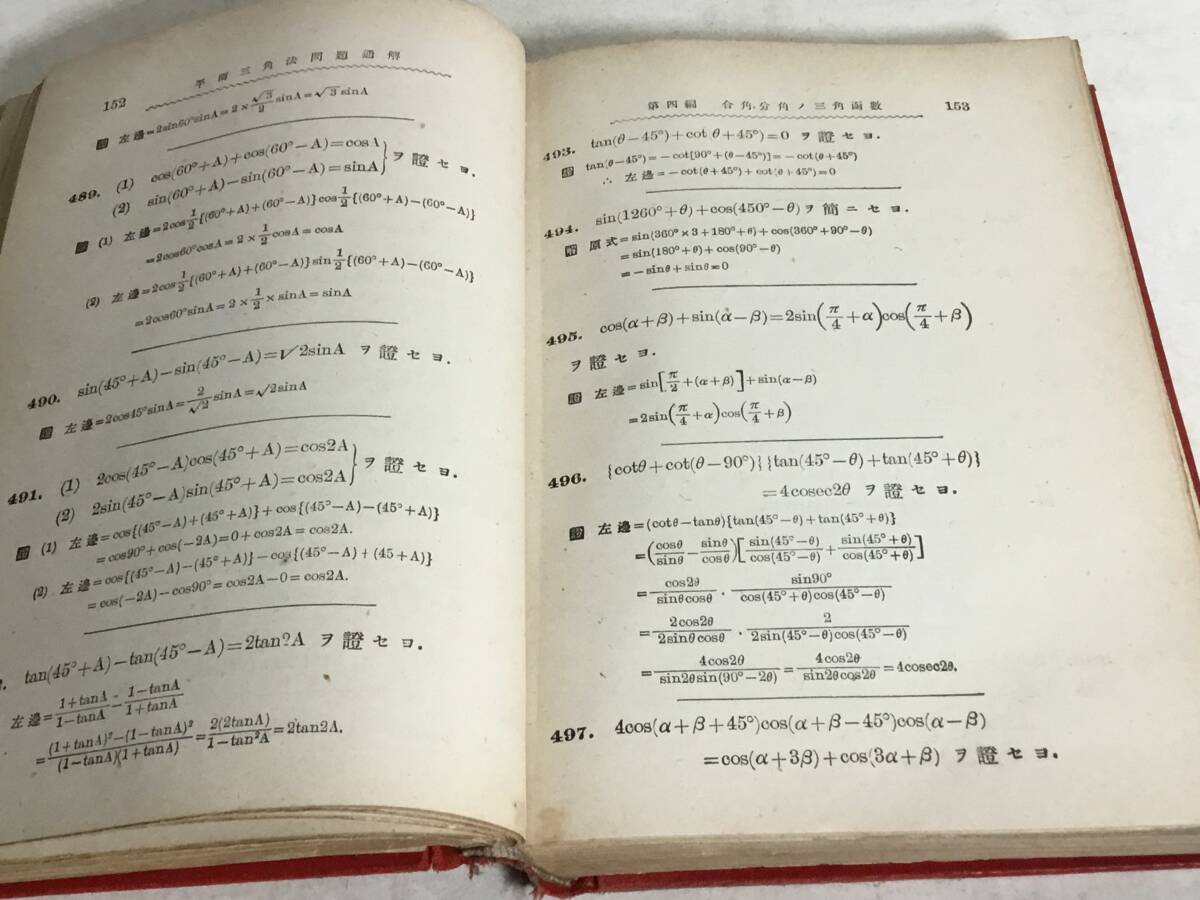 平面三角法問題通解
152
證 左邊=2sin60°sinA=2×√3/2 sinA=√3 sinA
489. (1) cos(60°+A)+cos(60°−A)=cosA
(2) sin(60°+A)−sin(60°−A)=sinA } ヲ證セヨ.
證 (1) 左邊=2cos1/2{(60°+A)+(60°−A)}cos1/2{(60°+A)−(60°−A)}
=2cos60°cosA=2×1/2cosA=cosA
(2) 左邊=2cos1/2{(60°+A)+(60°−A)}sin1/2{(60°+A)−(60°−A)}
=2cos60°sinA=2×1/2×sinA=sinA
490. sin(45°+A)−sin(45°−A)=√2sinA ヲ證セヨ.
證 左邊=2cos45°sinA=2/√2 sinA=√2sinA
491. (1) 2cos(45°−A)cos(45°+A)=cos2A
(2) 2sin(45°−A)sin(45°+A)=cos2A } ヲ證セヨ.
證 (1) 左邊=cos{(45°−A)+(45°+A)}+cos{(45°−A)−(45°+A)}
=cos90°+cos(−2A)=0+cos2A=cos2A.
(2) 左邊=cos{(45°−A)−(45°+A)}−cos{(45°−A)+(45+A)}
=cos(−2A)−cos90°=cos2A−0=cos2A.
tan(45°+A)−tan(45°−A)=2tan2A ヲ證セヨ.
左邊=(1+tanA)/(1−tanA)−(1−tanA)/(1+tanA)
=((1+tanA)²−(1−tanA)²)/((1−tanA)(1+tanA))=2(2tanA)/(1−tan²A)=2tan2A.
第四編 合角,分角ノ三角函數
153
493. tan(θ−45°)+cot θ+45°)=0 ヲ證セヨ.
證 tan(θ−45°)=−cot[90°+(θ−45°)]=−cot(θ+45°)
∴ 左邊=−cot(θ+45°)+cot(θ+45°)=0
494. sin(1260°+θ)+cos(450°−θ)ヲ簡ニセヨ.
解 原式=sin(360°×3+180°+θ)+cos(360°+90°−θ)
=sin(180°+θ)+cos(90°−θ)
=−sinθ+sinθ=0
495. cos(α+β)+sin(α−β)=2sin(π/4+α)cos(π/4+β)
ヲ證セヨ.
證 左邊=sin[π/2+(α+β)]+sin(α−β)
=2sin(π/4+α)cos(π/4+β)
496. {cotθ+cot(θ−90°)}{tan(45°−θ)+tan(45°+θ)}
=4cosec2θ ヲ證セヨ.
證 左邊=(cotθ−tanθ){tan(45°−θ)+tan(45°+θ)}
=(cosθ/sinθ−sinθ/cosθ)[sin(45°−θ)/cos(45°−θ)+sin(45°+θ)/cos(45°+θ)]
=cos2θ/sinθcosθ · sin90°/cos(45°+θ)cos(45°−θ)
=2cos2θ/2sinθcosθ · 2/2sin(45°−θ)cos(45°−θ)
=4cos2θ/sin2θsin(90°−2θ)=4cos2θ/sin2θcos2θ=4cosec2θ.
497. 4cos(α+β+45°)cos(α+β−45°)cos(α−β)
=cos(α+3β)+cos(3α+β) ヲ證セヨ.